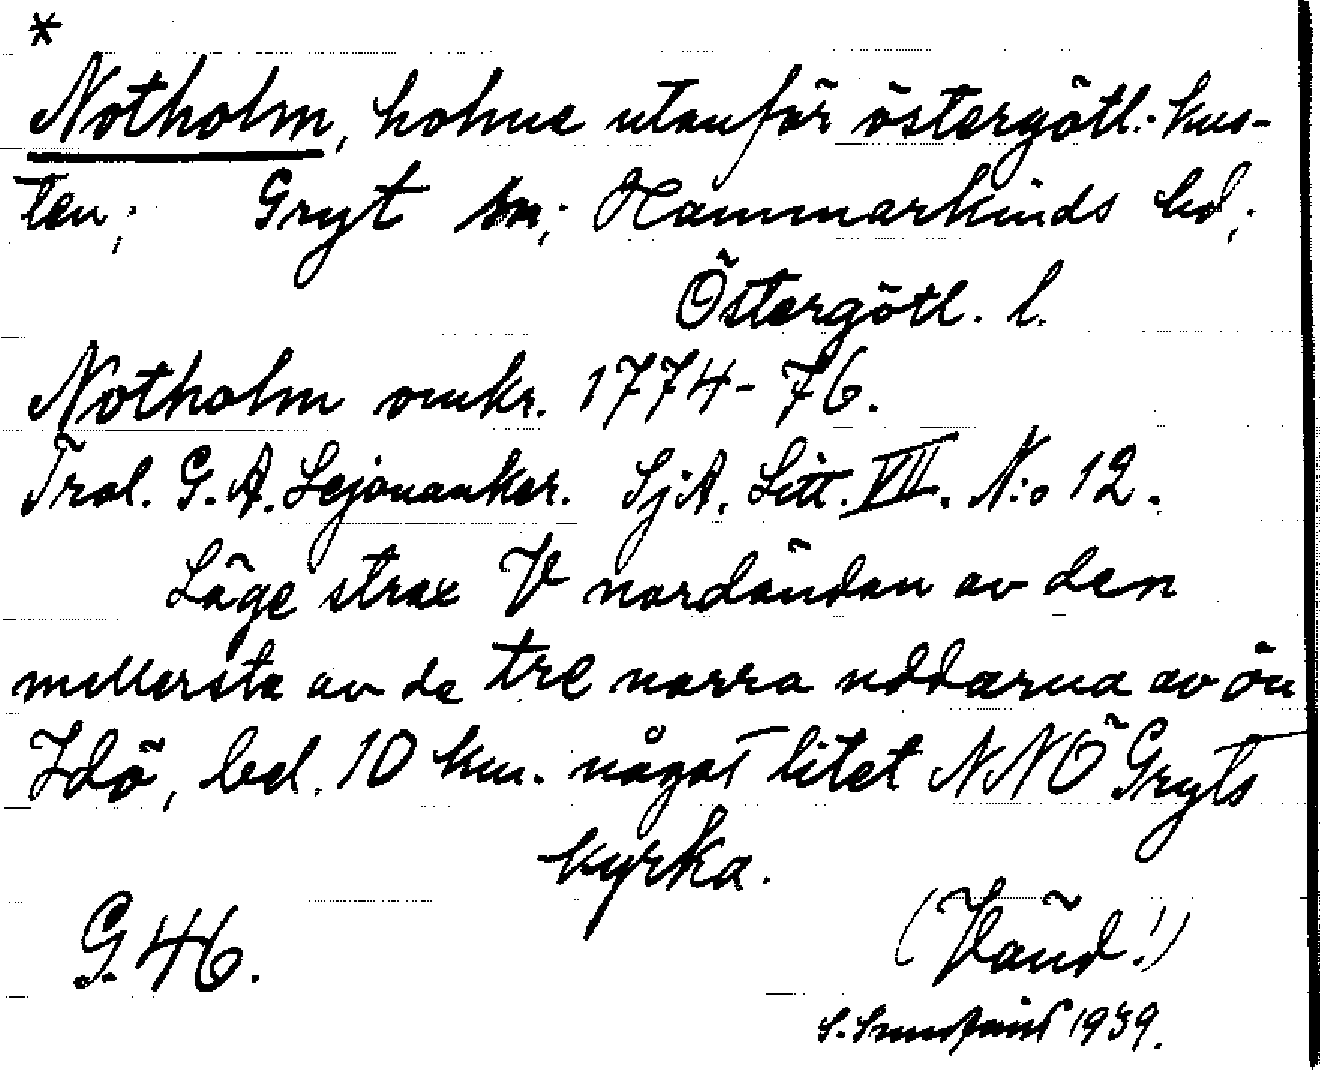 *
Notholm, holme utanför östergötl. kus-
ten; Gryt sn; Hammarkinds hd;
Östergötl. l.
Notholm omkr. 1774-76.
Trol. G. A. Lejonanker. SjA. Litt. VII. N:o 12.
Läge strax V nordändan av den
mellersta av de tre norra uddarna av ön
Idö, bel. 10 km. något litet NNÖ Gryts
kyrka.
G. 46. (Vänd!)
S. 1939.